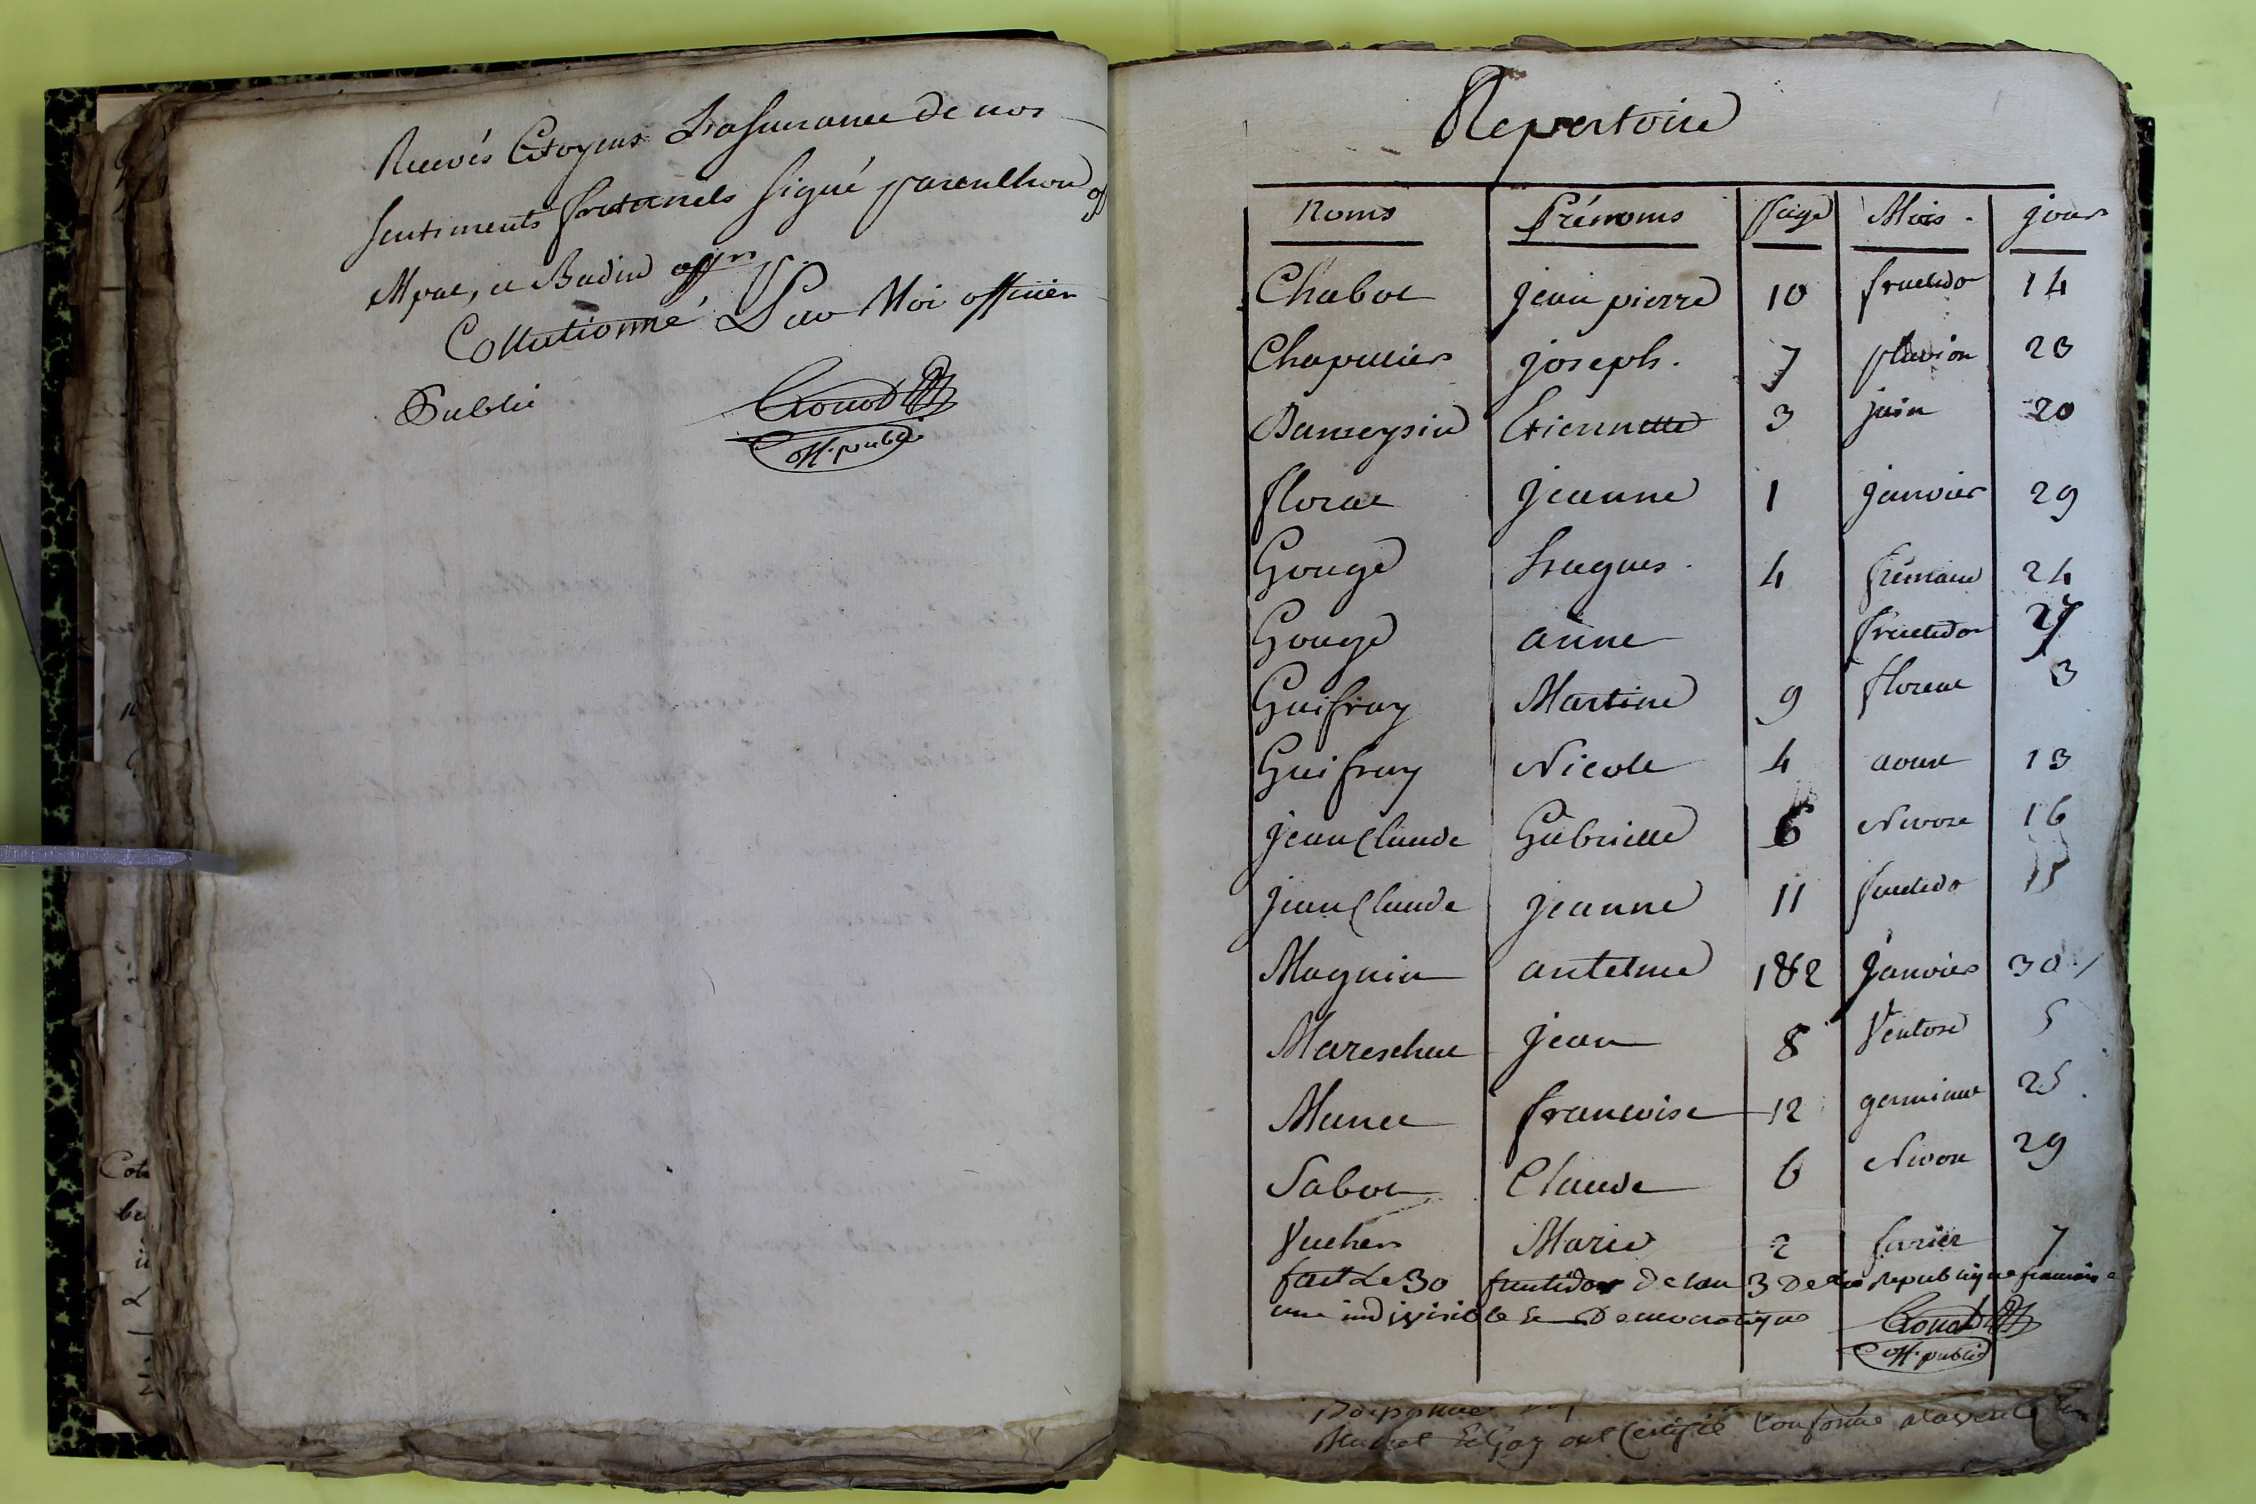 Recevés Citoyens L'assurance de nos
sentiments fraternels signé parenthou off
Mpal, et Badin offr
Collationné Par Moi officier
Public
off. public
Repertoire
Noms Prénoms page Mois jours
Chabot jean pierre 10 fructido 14
Chapellier joseph 7 pluvios 23
Dameysin Etiennette 3 juin 20
florat jeanne 1 janvier 29
Gouge hugues 4 frimaire 24
Gouge anne fructidor 27
Guifray Martine 9 floreal 3
Guifray Nicole 4 aoust 13
jean Claude Gabrielle 6 Nivose 16
jean Claude jeanne 11 fructido 15
Magnin antelme 1&2 janvier 30
Mareschal jean 8 Ventose 5
Manet francoise 12 germinal 25
Sabot Claude 6 Nivose 29
Vucher Marie 2 fevrier 7
fait Le 30 fructidor de lan 3 de la republique francaise
une indivisible et Democratique
off. public
et certifié Conforme